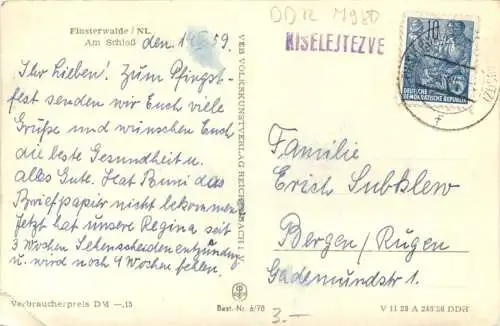 Finsterwalde / NL.
Am Schloß
den 14. 5. 59.
Ihr Lieben! Zum Pfingst-
fest senden wir Euch viele
Grüße und wünschen Euch
die beste Gesundheit u.
alles Gute. Hat Bruni das
Briefpapier nicht bekommen.
Jetzt hat unsere Regina seit
3 Wochen Sehnscheidenentzündung
u. wird noch 4 Wochen fehlen.
Verbraucherpreis DM —,15
VEB VOLKSKUNSTVERLAG REICHENBACH I. V.
Best.-Nr. 6/78
DDR M980
KISELEJTEZVE
10
DEUTSCHE
DEMOKRATISCHE REPUBLIK
Familie
Erich Subklew
Bergen/Rügen
Gademundstr 1.
3.—
V 11 28 A 245/56 DDR